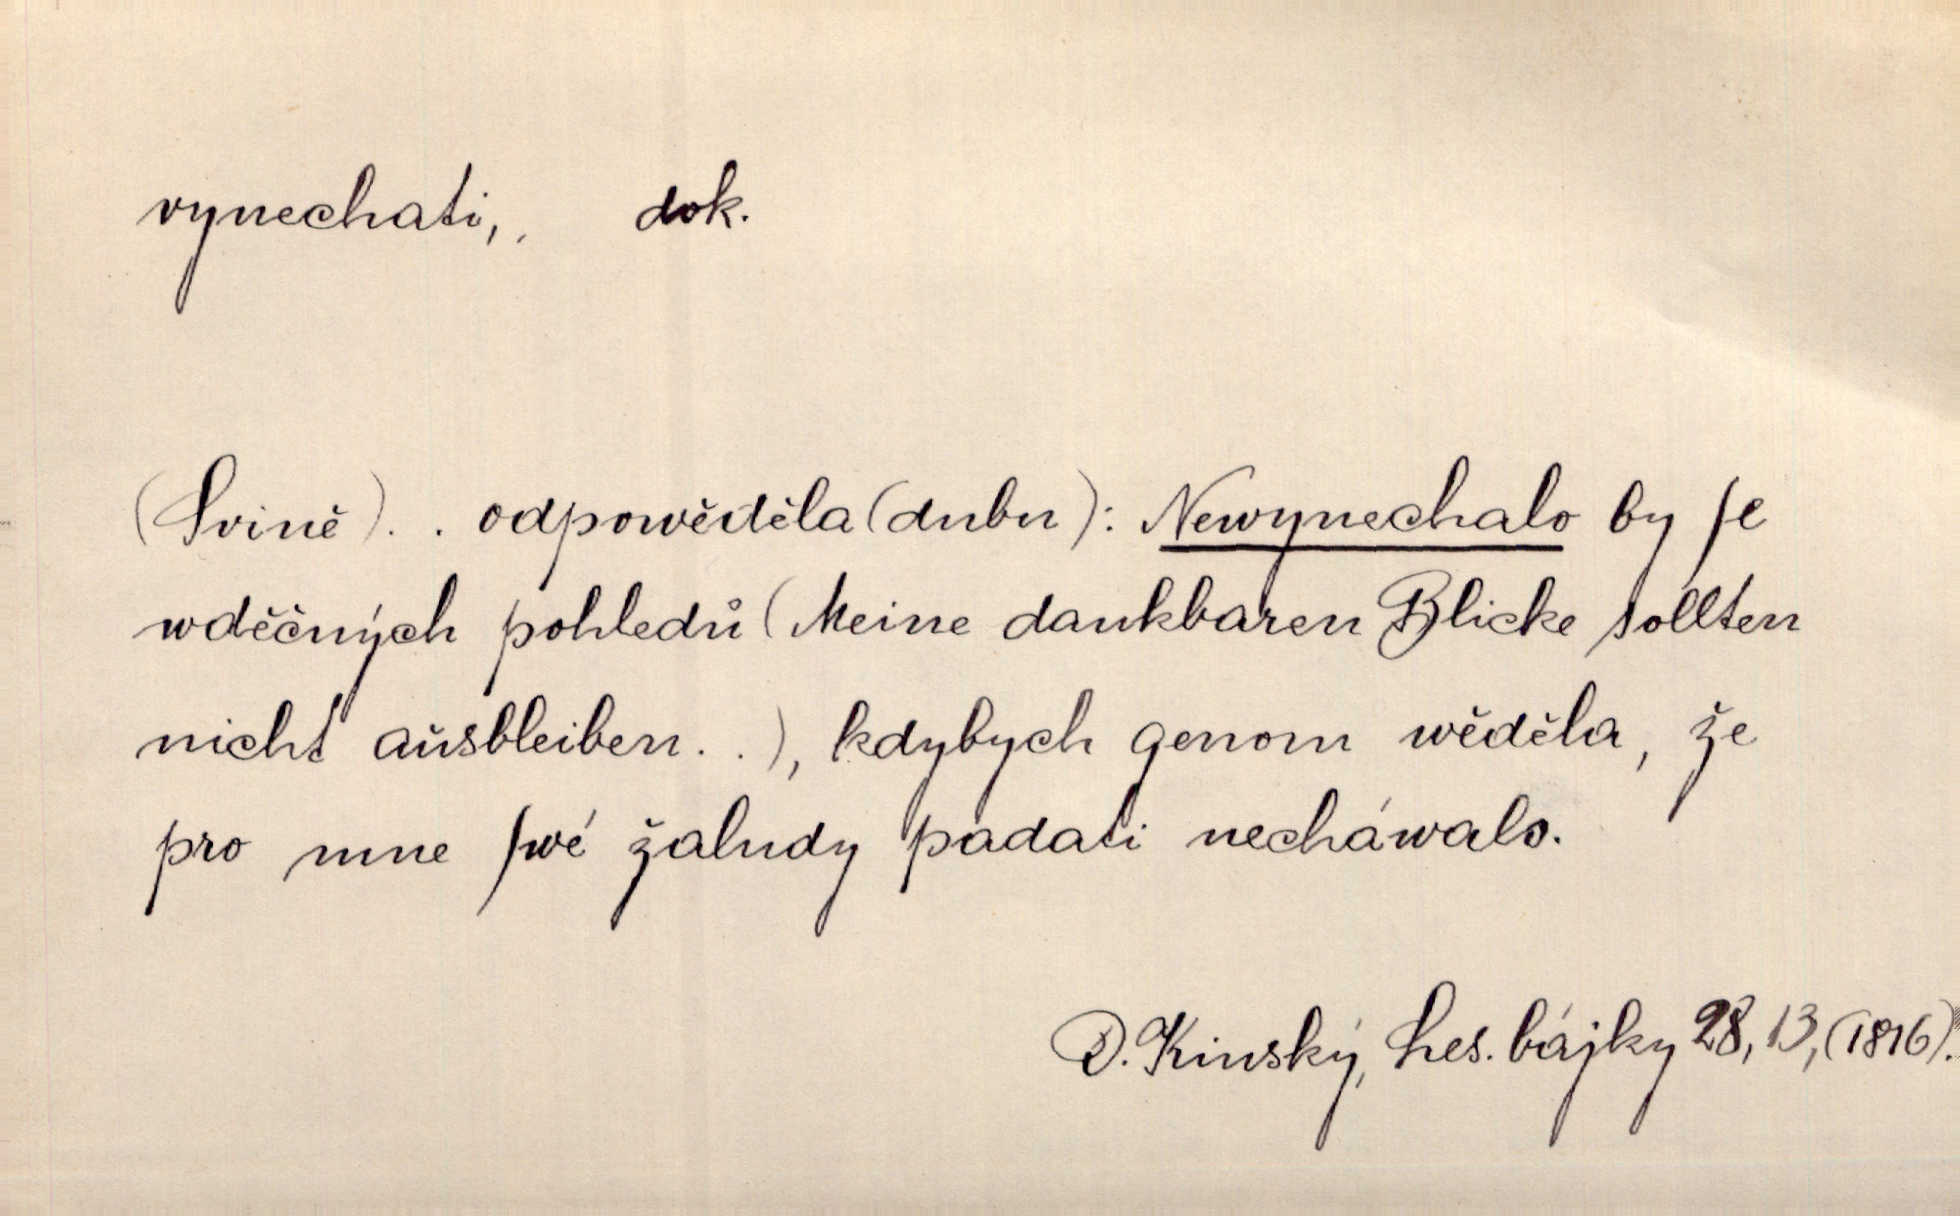 vynechati, dok.
(Svině) . . odpowěděla (dubu): Newynechalo by ſe
wděčných pohledů (Meine dankbaren Blicke sollten
nicht ausbleiben . . ), kdybych genom wěděla, že
pro mne ſwé žaludy padati necháwalo.
D. Kinský, Les. bájky 28, 13, (1816).